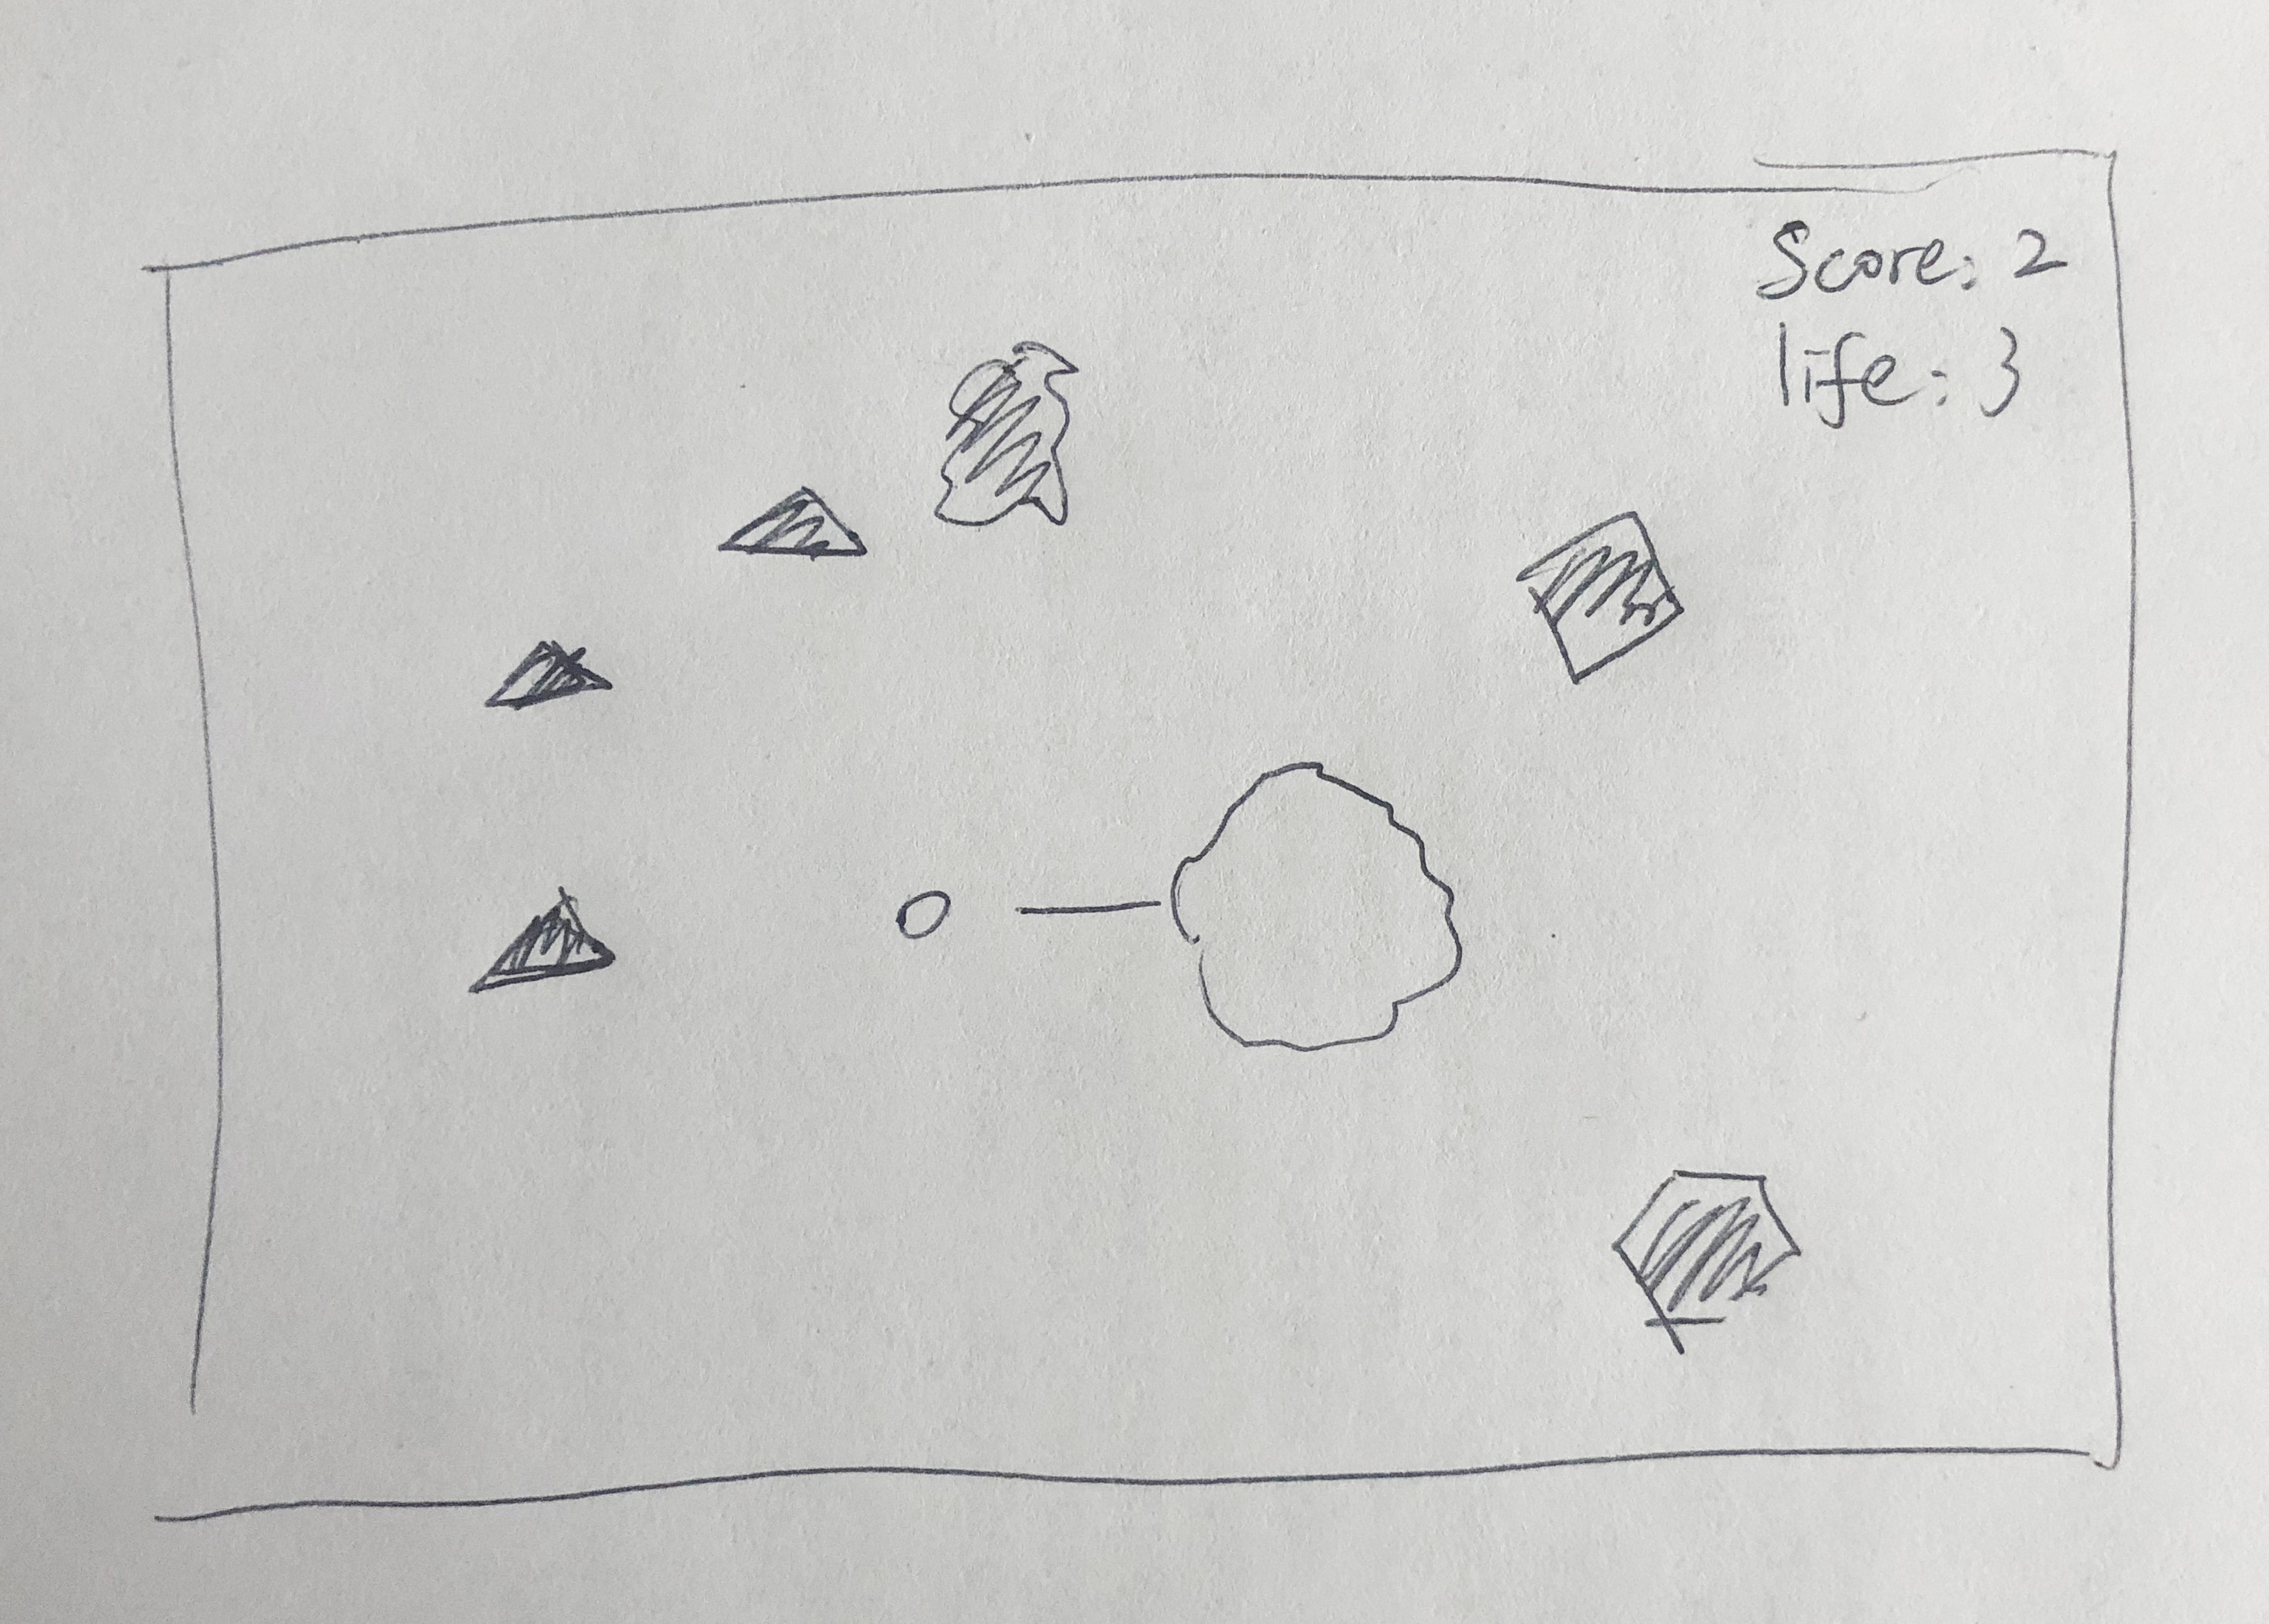 Score: 2
life: 3